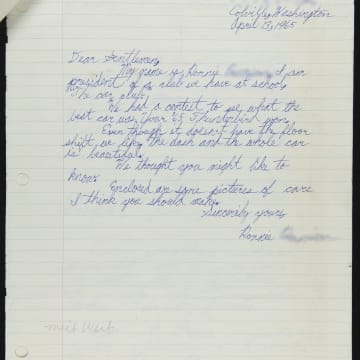 Colville, Washington
April 13, 1965
Dear Gentlemen,
My name is Ronnie I am
president of the club we have at school,
"The car club".
We had a contest to see what the
best car was. Your 65 Thunderbird won.
Even though it doesn't have the floor
shift, we like the dash and the whole car
is beautiful.
We thought you might like to
know.
Enclosed are some pictures of cars
I think you should make.
Sincerely yours,
Ronnie